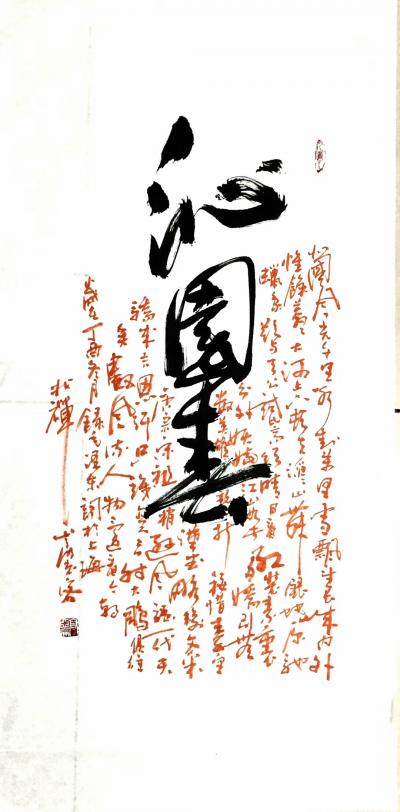 沁園春
國風光千里冰封萬里雪飄望長城内外
惟餘莽莽大河上下頓失滔滔山舞銀蛇原馳
蠟象欲與天公試比高須晴日看紅裝素裹
分外妖嬈江山如此多嬌引無
數英雄競折腰惜秦皇
漢武略輸文采
唐宗宋祖稍遜風騷一代天
驕成吉思汗只識彎弓射大雕俱往
矣數風流人物還看今朝
歲在丁酉月錄毛澤東詞於上海